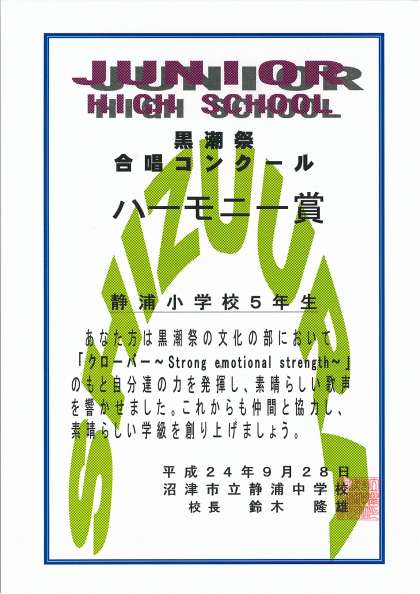 JUNIOR
HIGH SCHOOL
黒潮祭
合唱コンクール
ハーモニー賞
SHIZUURA
静浦小学校5年生
あなた方は黒潮祭の文化の部において
「クローバー～Strong emotional strength～」
のもと自分達の力を発揮し、素晴らしい歌声
を響かせました。これからも仲間と協力し、
素晴らしい学級を創り上げましょう。
平成24年9月28日
沼津市立静浦中学校
校長 鈴木 隆雄